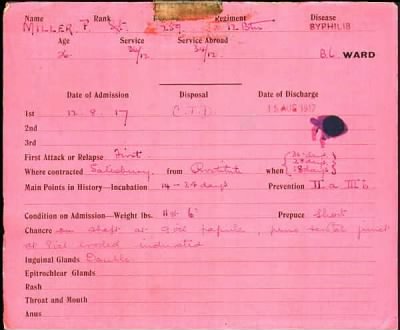 Name Rank Regiment Disease
MILLER. P. 289 12 Btn SYPHILIS
Age Service Service Abroad
26 26/12 24/12 B.L. WARD
Date of Admission Disposal Date of Discharge
1st 12. 8. 17 C.T.D. 15 AUG 1917
2nd
3rd
First Attack or Relapse First.
Where contracted Salisbury. from Prostitute when 18 days
Main Points in History—Incubation 14 - 24 days Prevention II a III b
Condition on Admission—Weight lbs. Prepuce Short
Chancre on shaft at papule, junct
eroded indurated
Inguinal Glands Double.
Epitrochlear Glands
Rash
Throat and Mouth
Anus